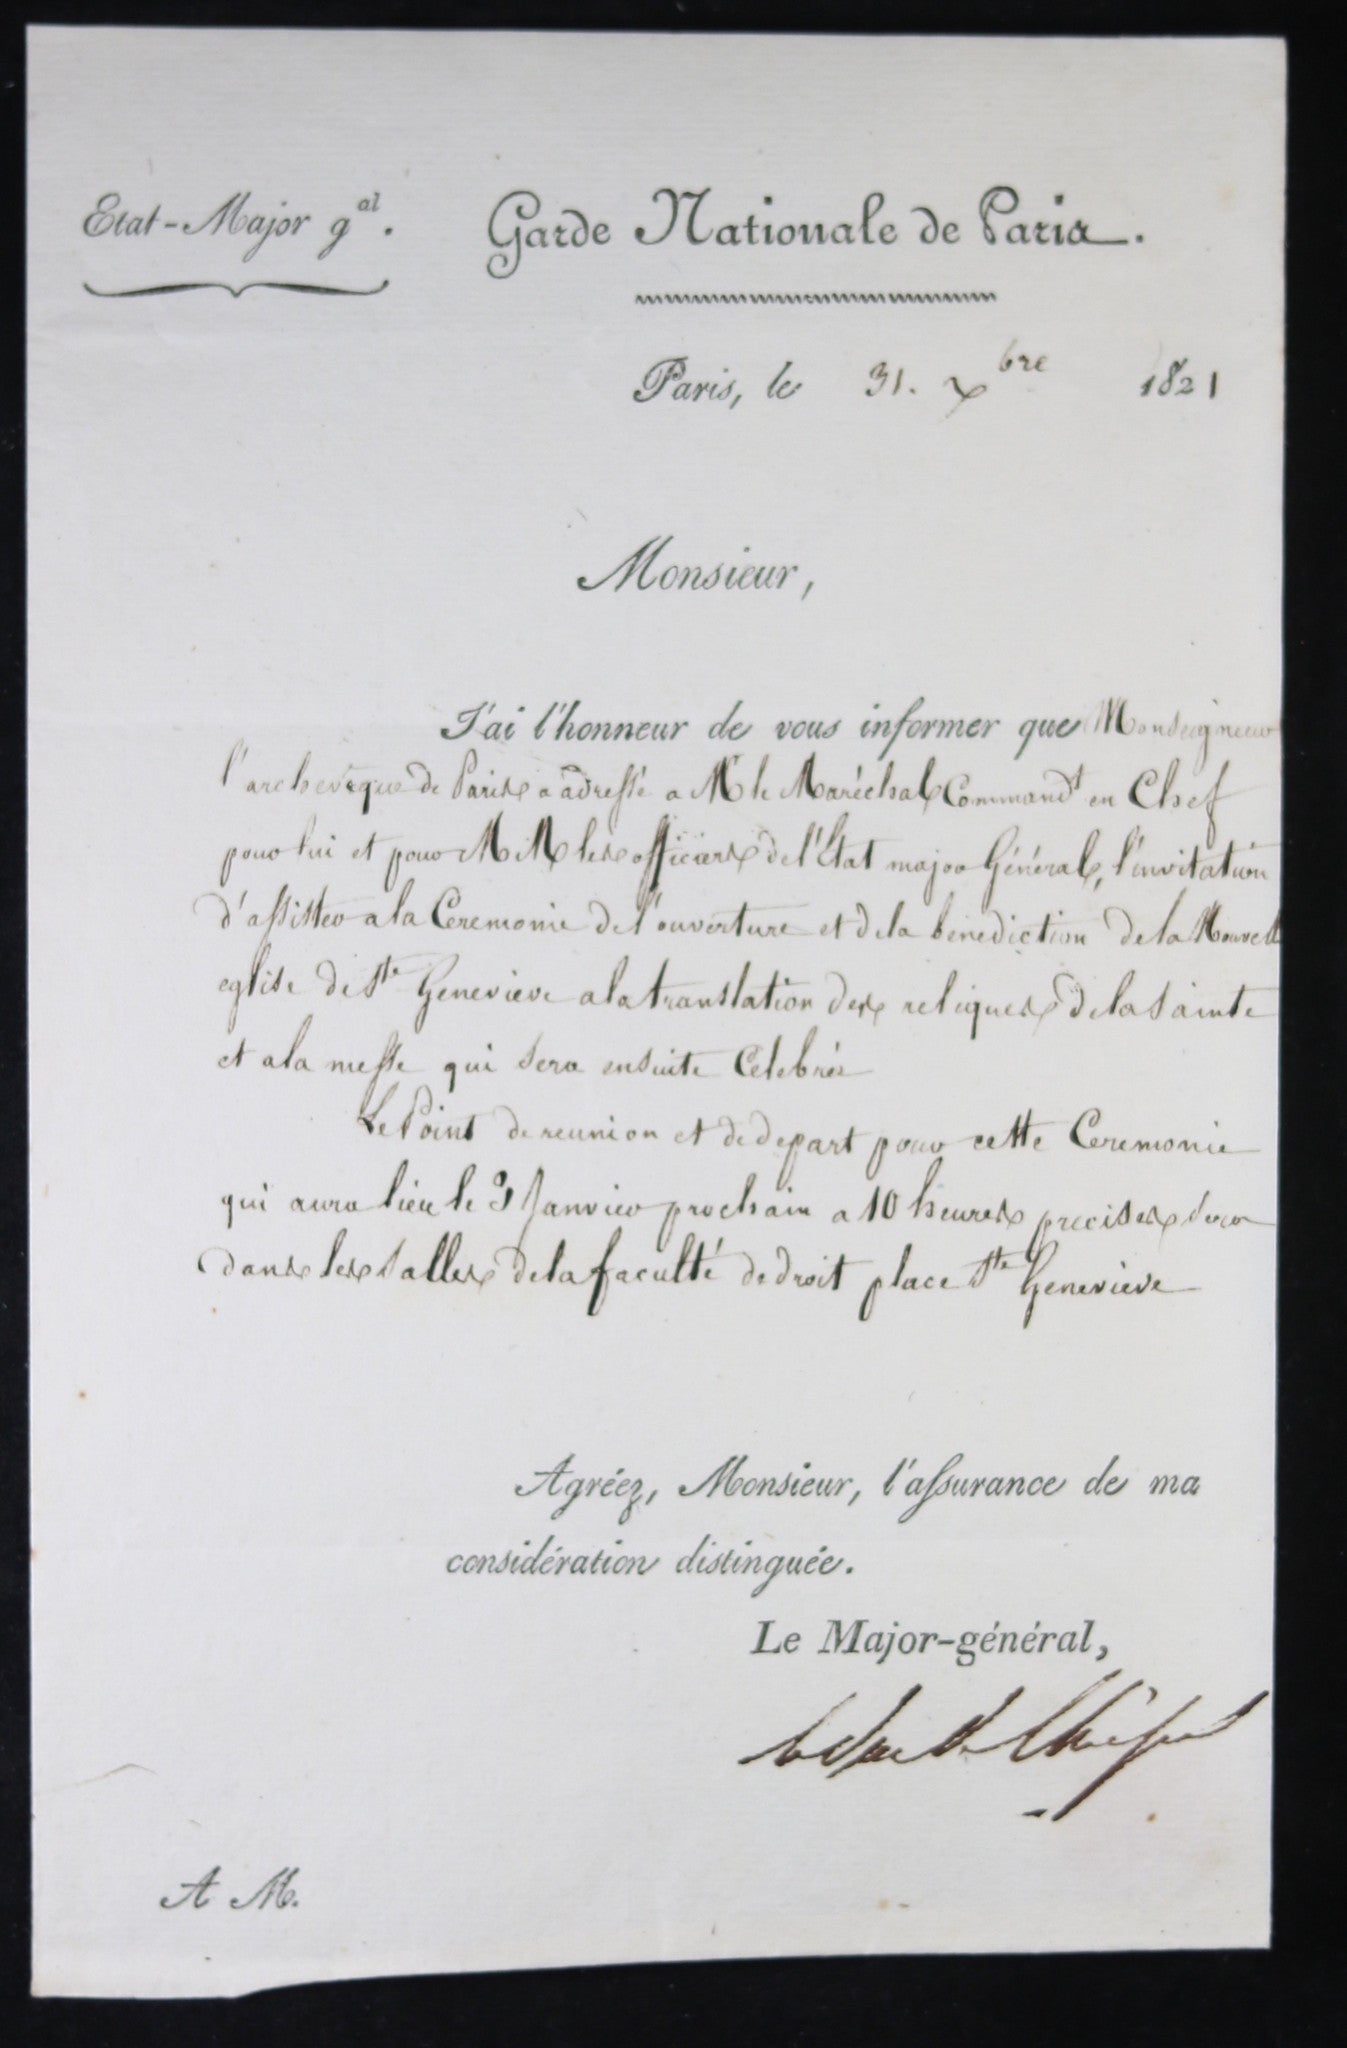 Etat-Major g^al.
Garde Nationale de Paris.
Paris, le 31. X^bre 1821
Monsieur,
J'ai l'honneur de vous informer que Monseigneur
l'archevêque de Paris a adressé a M le Maréchal Command^t en Chef
pour lui et pour MM les officiers de l'Etat major Général, l'invitation
d'assister a la Ceremonie de l'ouverture et de la benediction de la Nouvelle
eglise de S^te Genevieve a la translation des reliques de la Sainte
et a la messe qui sera ensuite Celebrée
Le Point de reunion et de depart pour cette Ceremonie
qui aura lieu le 3 Janvier prochain a 10 heures precises sera
dans les Salles de la faculté de droit place S^te Genevieve
Agréez, Monsieur, l'assurance de ma
considération distinguée.
Le Major-général,
A M.